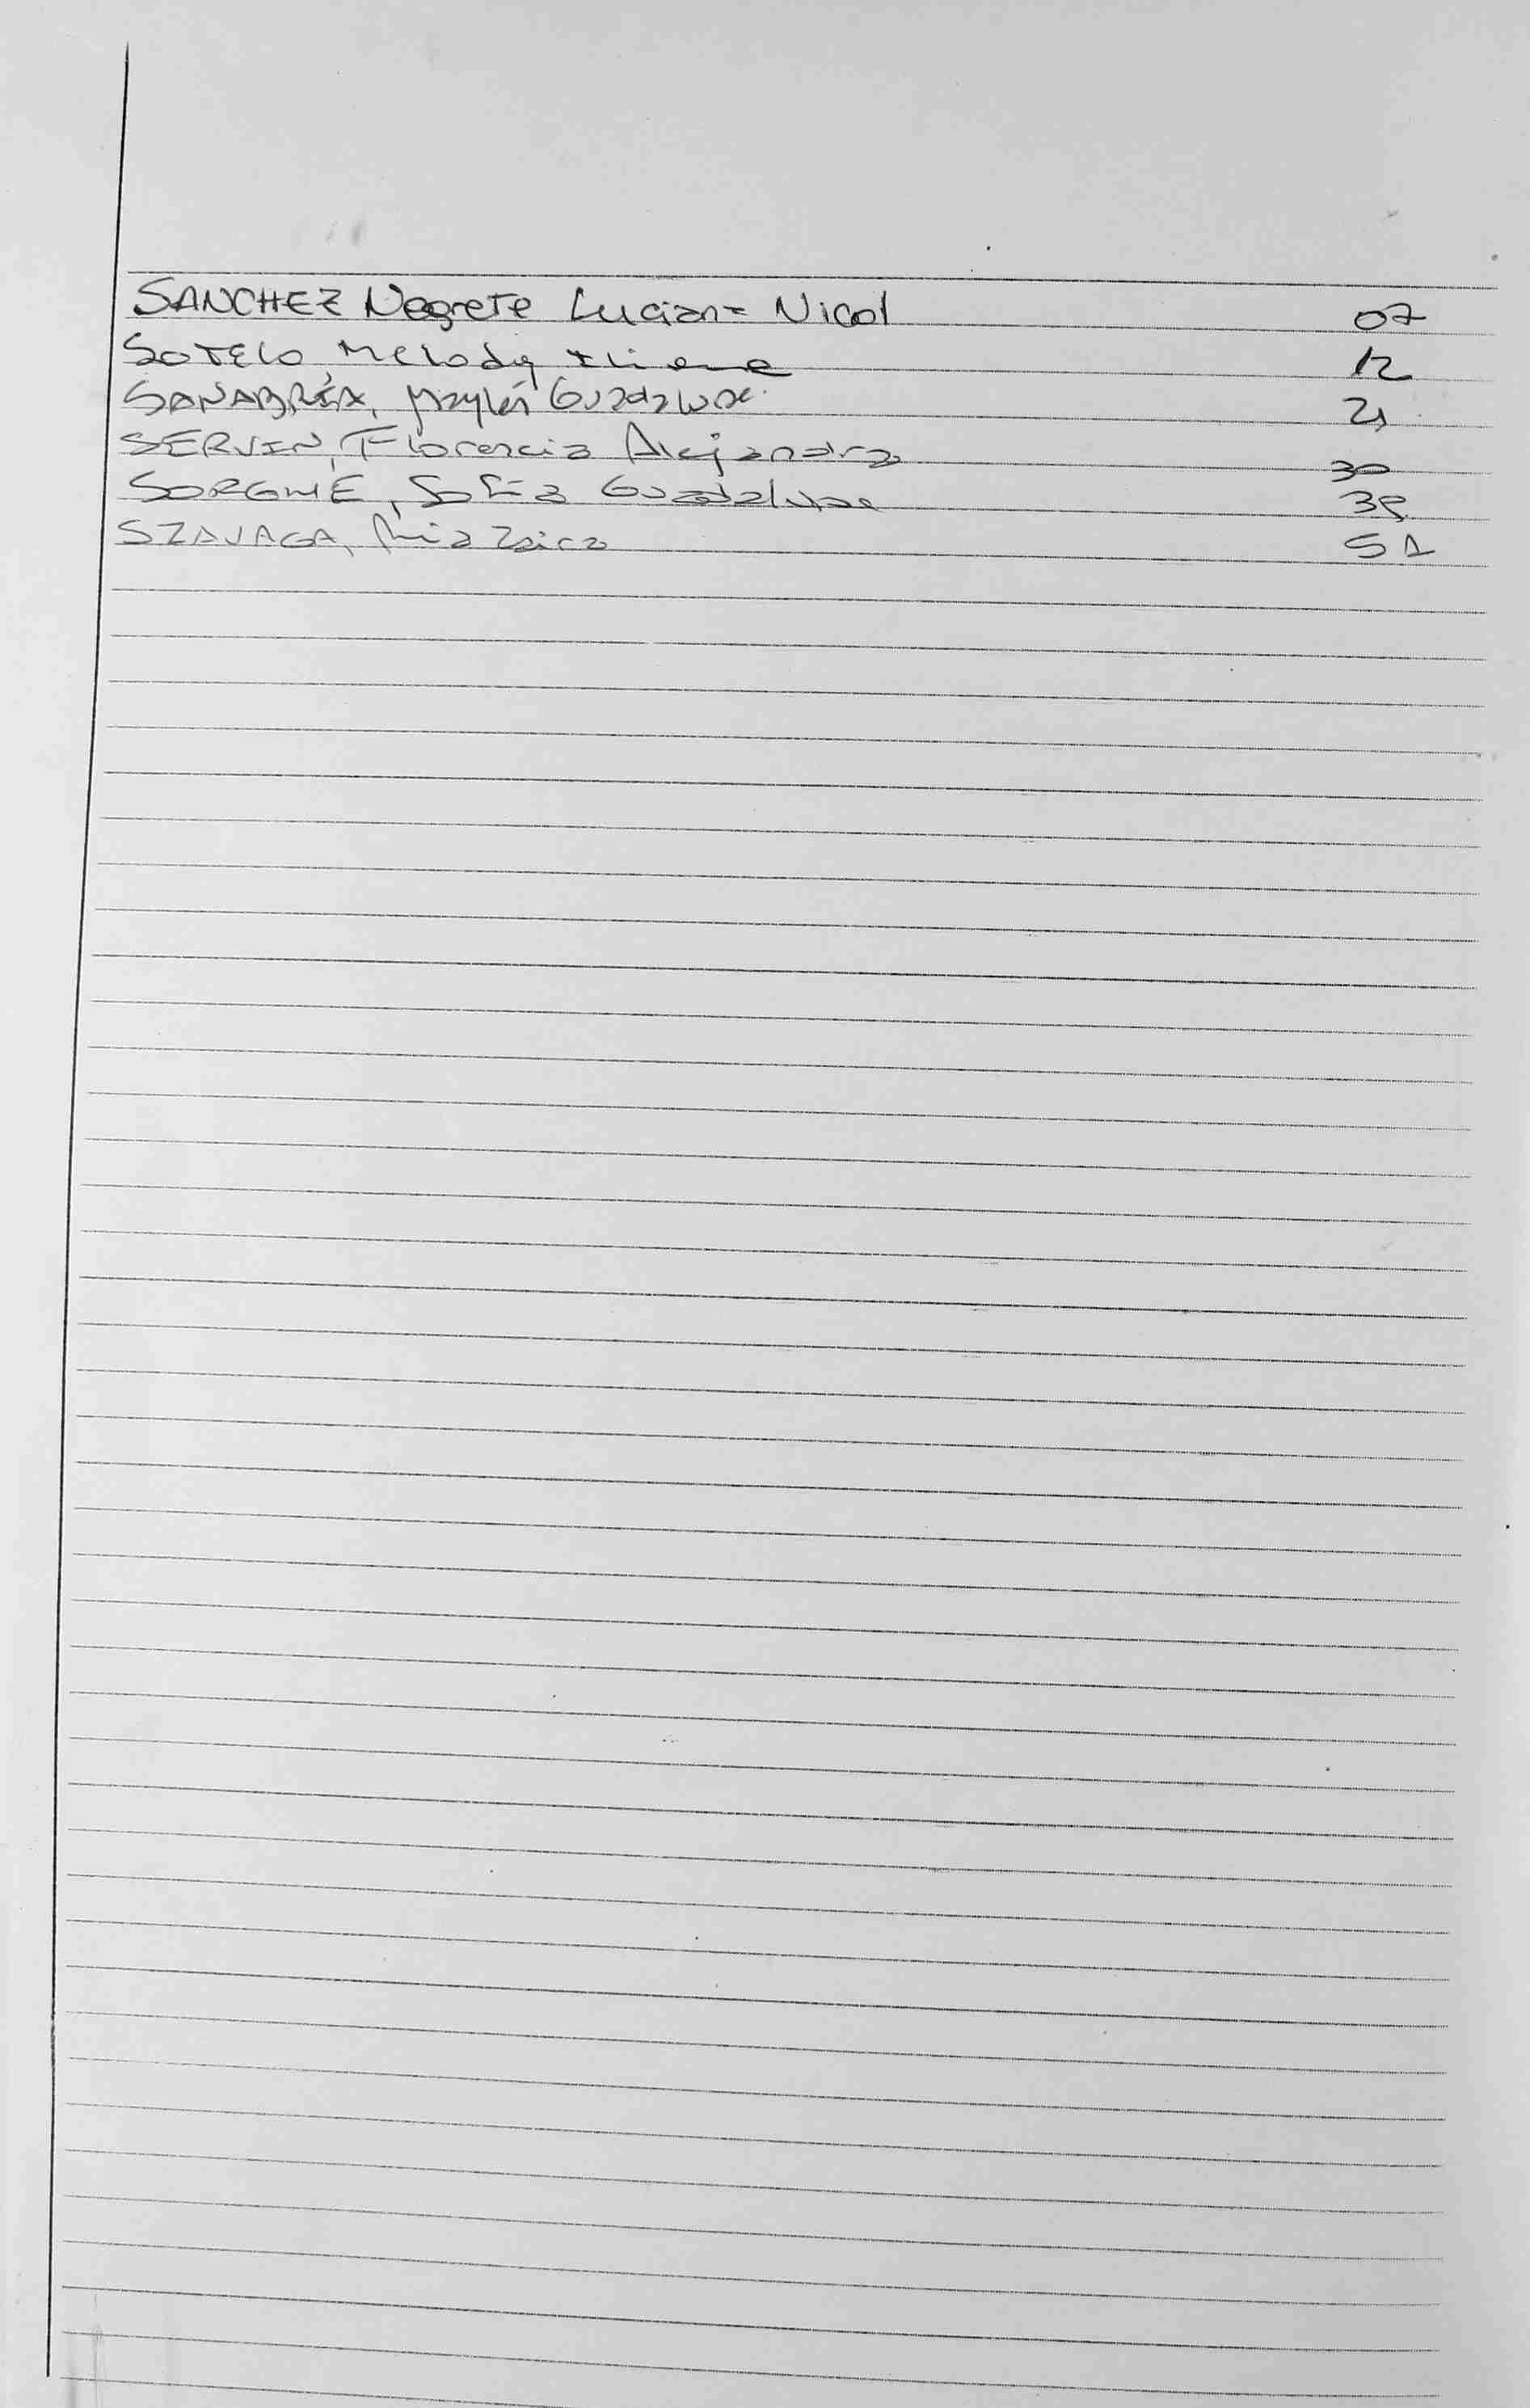 SANCHEZ Negrete Luciana Nicol 07
SOTELO, Melody 12
SANABRÍA, Maylén Guadalupe. 21
SERVIN, Florencia Alejandra 30
SORGNE, Sofía Guadalupe 39
SZAVAGA, Mia Zaira 51